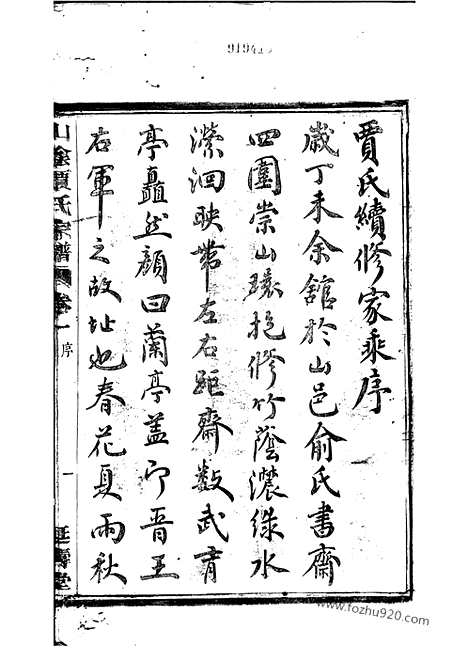 賈氏續修家乘序
歲丁未余館於山邑俞氏書齋
四圍崇山環抱修竹蔭濃綠水
瀠洄映帶左右距齋數武有
亭矗然顏曰蘭亭蓋即晉王
右軍之故址也春花夏雨秋
山陰賈氏宗譜 卷一 序 一
www.fozhu920.com